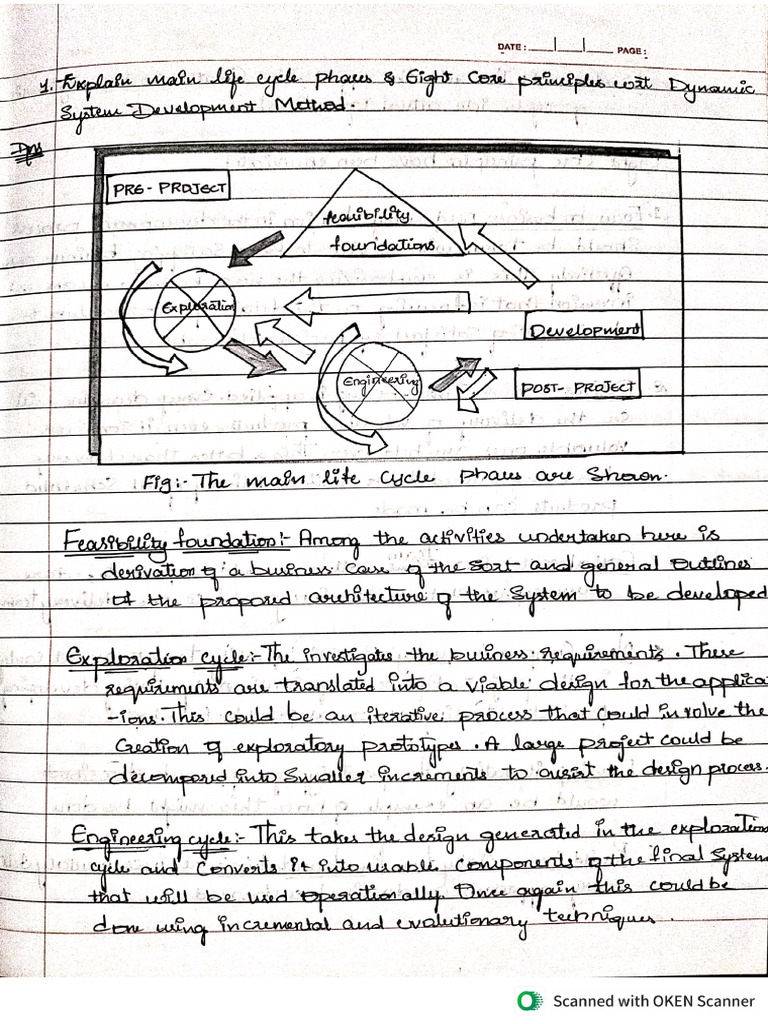 DATE: PAGE:
1. Explain main life cycle phases & Eight Core principles wrt Dynamic
System Development Method.
Ans
PRE-PROJECT
feasibility
foundations
Exploration
Development
Engineering
POST-PROJECT
Fig:- The main life cycle phases are Shown.
Feasibility foundation:- Among the activities undertaken here is
derivation of a business case of the sort and general outlines
of the proposed architecture of the System to be developed
Exploration cycle:- The investigates the business requirements. These
requirements are translated into a viable design for the applicat
-ions. This could be an iterative process that could involve the
Creation of exploratory prototypes. A large project could be
decomposed into Smaller increments to assist the design process.
Engineering cycle:- This takes the design generated in the exploration
cycle and converts it into usable components of the final System
that will be used operationally. Once again this could be
done using incremental and evolutionary techniques.
Scanned with OKEN Scanner